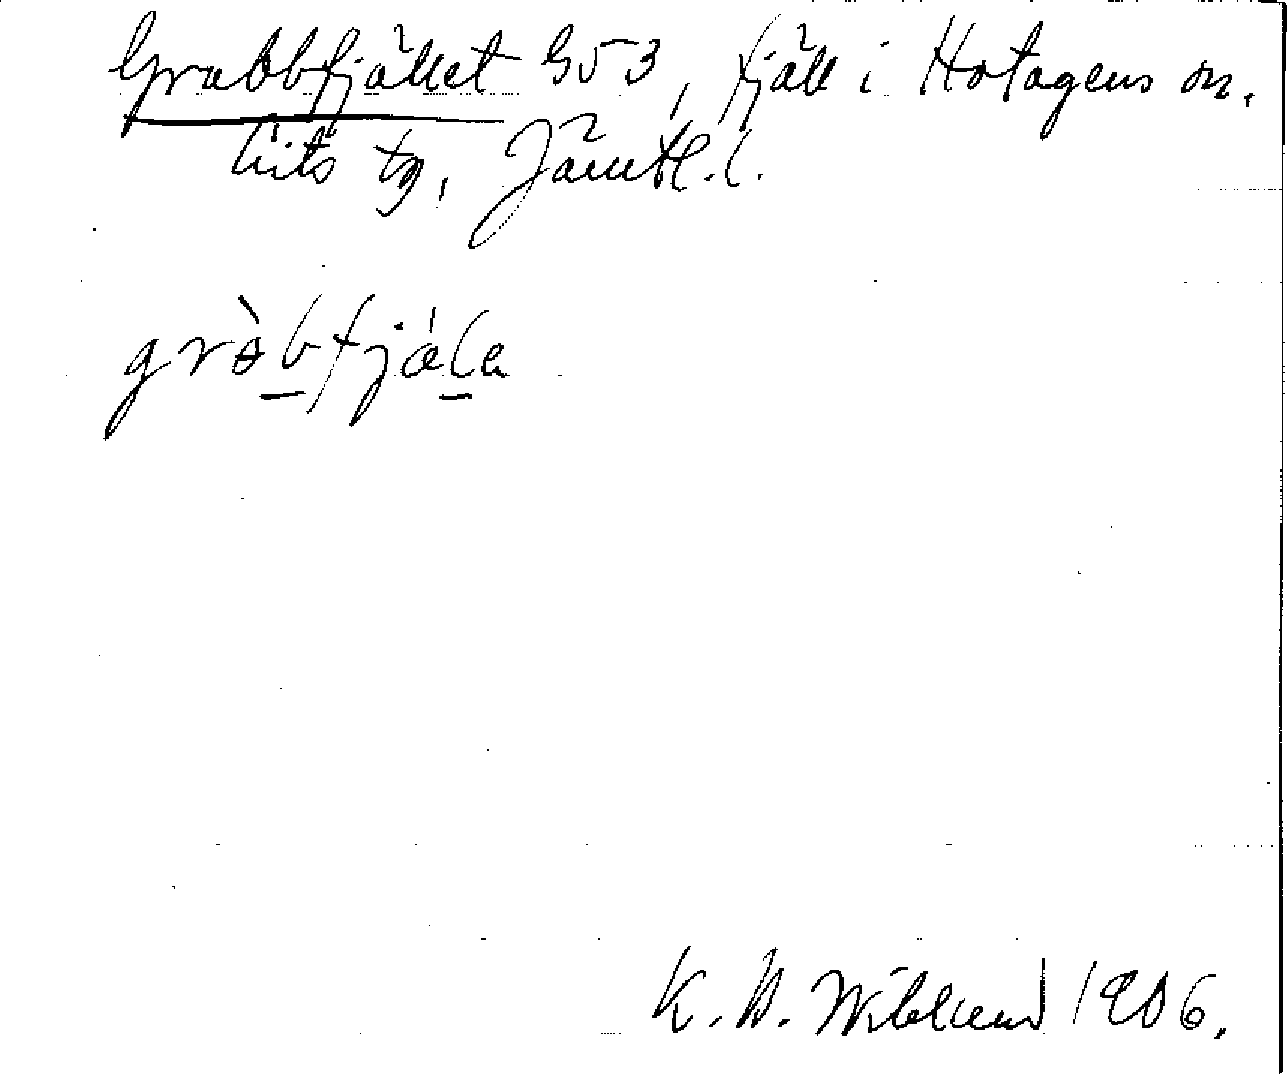 Grabbfjället GV3, fjäll i Hotagens sn,
Lits tg, Jämtl. l.
gràbfjála
K. B. Wiklund 1906.